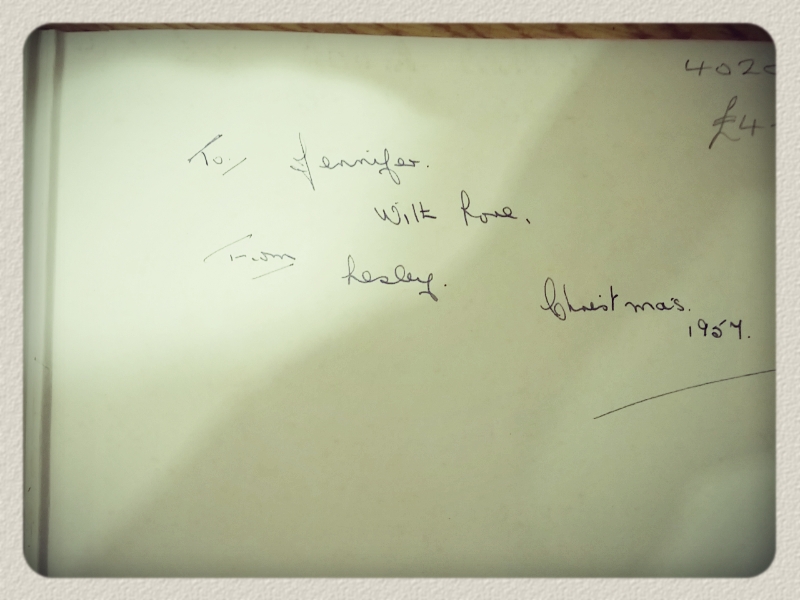 402
£4
To Jennifer.
With Love.
From Lesley.
Christmas.
1957.